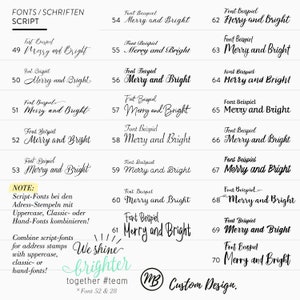 FONTS / SCHRIFTEN
SCRIPT
49 Font Beispiel
Merry and Bright
50 Font Beispiel
Merry and Bright
51 Font Beispiel
Merry and Bright
52 Font Beispiel
Merry and Bright
53 Font Beispiel
Merry and Bright
NOTE:
Script-Fonts bei den
Adress-Stempeln mit
Uppercase, Classic- oder
Hand-Fonts kombinieren!
Combine script-fonts
for address stamps
with uppercase,
classic- or
hand-fonts!
54 Font Beispiel
Merry and Bright
55 Font Beispiel
Merry and Bright
56 Font Beispiel
Merry and Bright
57 Font Beispiel
Merry and Bright
58 Font Beispiel
Merry and Bright
59 Font Beispiel
Merry and Bright
60 Font Beispiel
Merry and Bright
61 Font Beispiel
Merry and Bright
62 Font Beispiel
Merry and Bright
63 Font Beispiel
Merry and Bright
64 Font Beispiel
Merry and Bright
65 Font Beispiel
Merry and Bright
66 Font Beispiel
Merry and Bright
67 Font Beispiel
Merry and Bright
68 Font Beispiel
Merry and Bright
69 Font Beispiel
Merry and Bright
70 Font Beispiel
Merry and Bright
We shine
brighter
together #team
* Font 52 & 28
MB Custom Design.